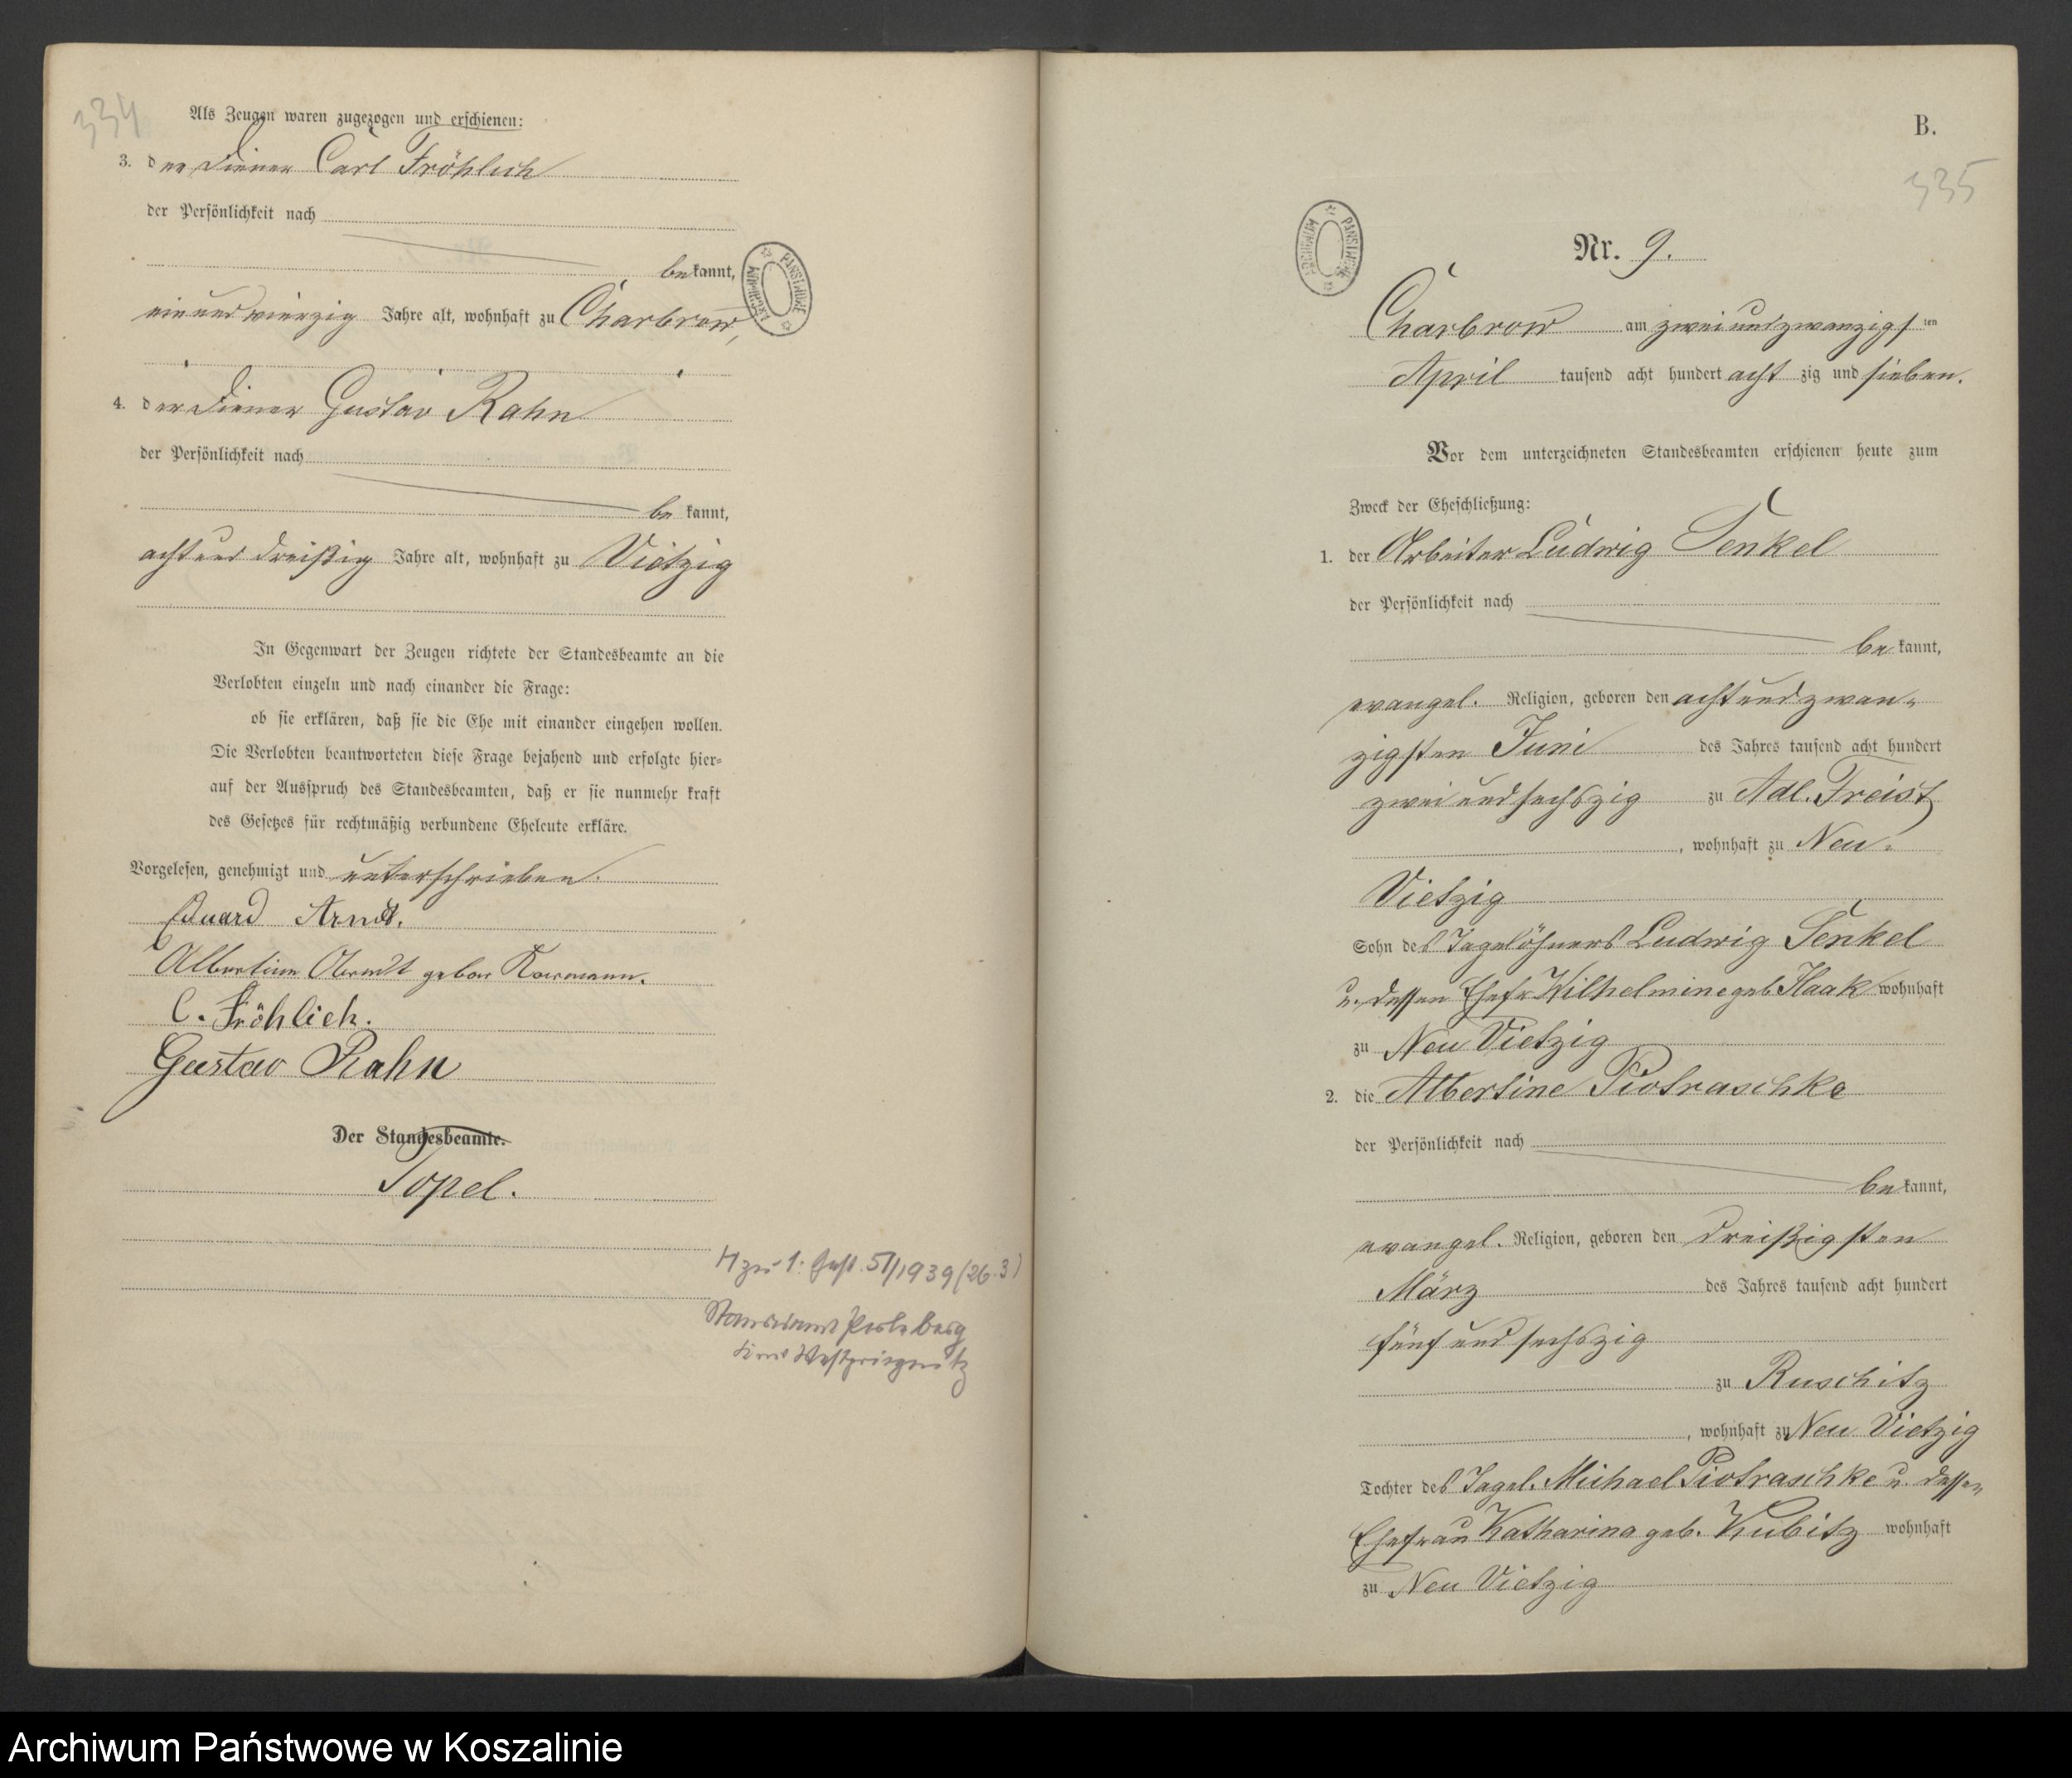 334
Als Zeugen waren zugezogen und erschienen:
3. der Diener Carl Fröhlich
der Persönlichkeit nach
bekannt,
einundvierzig Jahre alt, wohnhaft zu Charbrow,
4. der Diener Gustav Rahn
der Persönlichkeit nach
bekannt,
achtunddreißig Jahre alt, wohnhaft zu Vietzig
In Gegenwart der Zeugen richtete der Standesbeamte an die
Verlobten einzeln und nach einander die Frage:
ob sie erklären, daß sie die Ehe mit einander eingehen wollen.
Die Verlobten beantworteten diese Frage bejahend und erfolgte hier-
auf der Ausspruch des Standesbeamten, daß er sie nunmehr kraft
des Gesetzes für rechtmäßig verbundene Eheleute erkläre.
Vorgelesen, genehmigt und unterschrieben.
Eduard Arndt.
Albertine Arndt gebor
C. Fröhlich.
Gustav Rahn
Der Standesbeamte.
Topel.
H zu 1: 51/1939 (26.3)
Standesamt Perleberg
Kreis Westprignitz
ARCHIWUM PAŃSTWOWE
B.
335
ARCHIWUM PAŃSTWOWE
Nr. 9.
Charbrow am zweiundzwanzigsten
April tausend acht hundert achtzig und sieben.
Vor dem unterzeichneten Standesbeamten erschienen heute zum
Zweck der Eheschließung:
1. der Arbeiter Ludwig Tenkel
der Persönlichkeit nach
bekannt,
evangel. Religion, geboren den achtundzwan-
zigsten Juni des Jahres tausend acht hundert
zweiundsechszig zu Adl. Freist
, wohnhaft zu Neu-
Vietzig
Sohn des Tagelöhners Ludwig Tenkel
u. dessen Ehefr Wilhelmine geb Haak wohnhaft
zu Neu Vietzig
2. die Albertine Piotraschke
der Persönlichkeit nach
bekannt,
evangel. Religion, geboren den dreißigsten
März des Jahres tausend acht hundert
fünfundsechszig
zu Ruschitz
, wohnhaft zu Neu Vietzig
Tochter des Tagel. Michael Piotraschke u. dessen
Ehefrau Katharina geb. Kubitz wohnhaft
zu Neu Vietzig
Archiwum Państwowe w Koszalinie